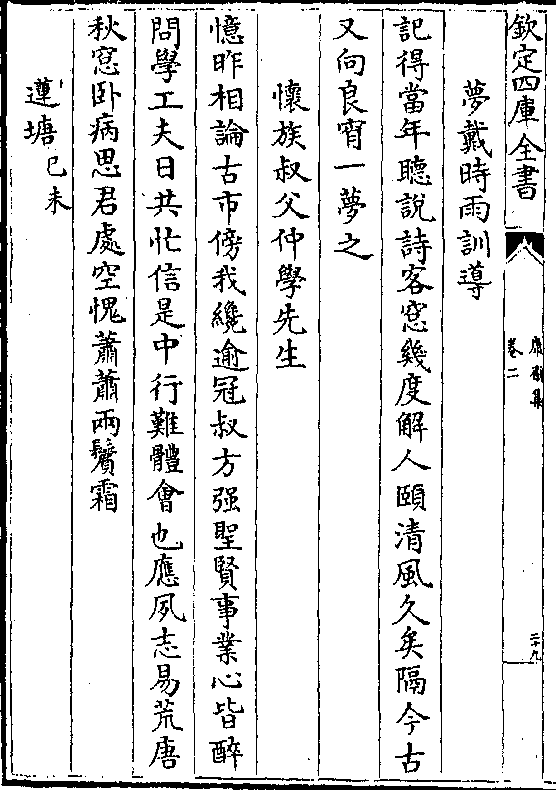 欽定四庫全書
康齋集
卷二
二十九
夢戴時雨訓導
記得當年聽説詩客窓幾度解人頤清風久矣隔今古
又向良宵一夢之
懷族叔父仲學先生
憶昨相論古市傍我纔逾冠叔方强聖賢事業心皆醉
問學工夫日共忙信是中行難體會也應夙志易荒唐
秋窓卧病思君處空愧蕭蕭兩鬢霜
蓮塘己未